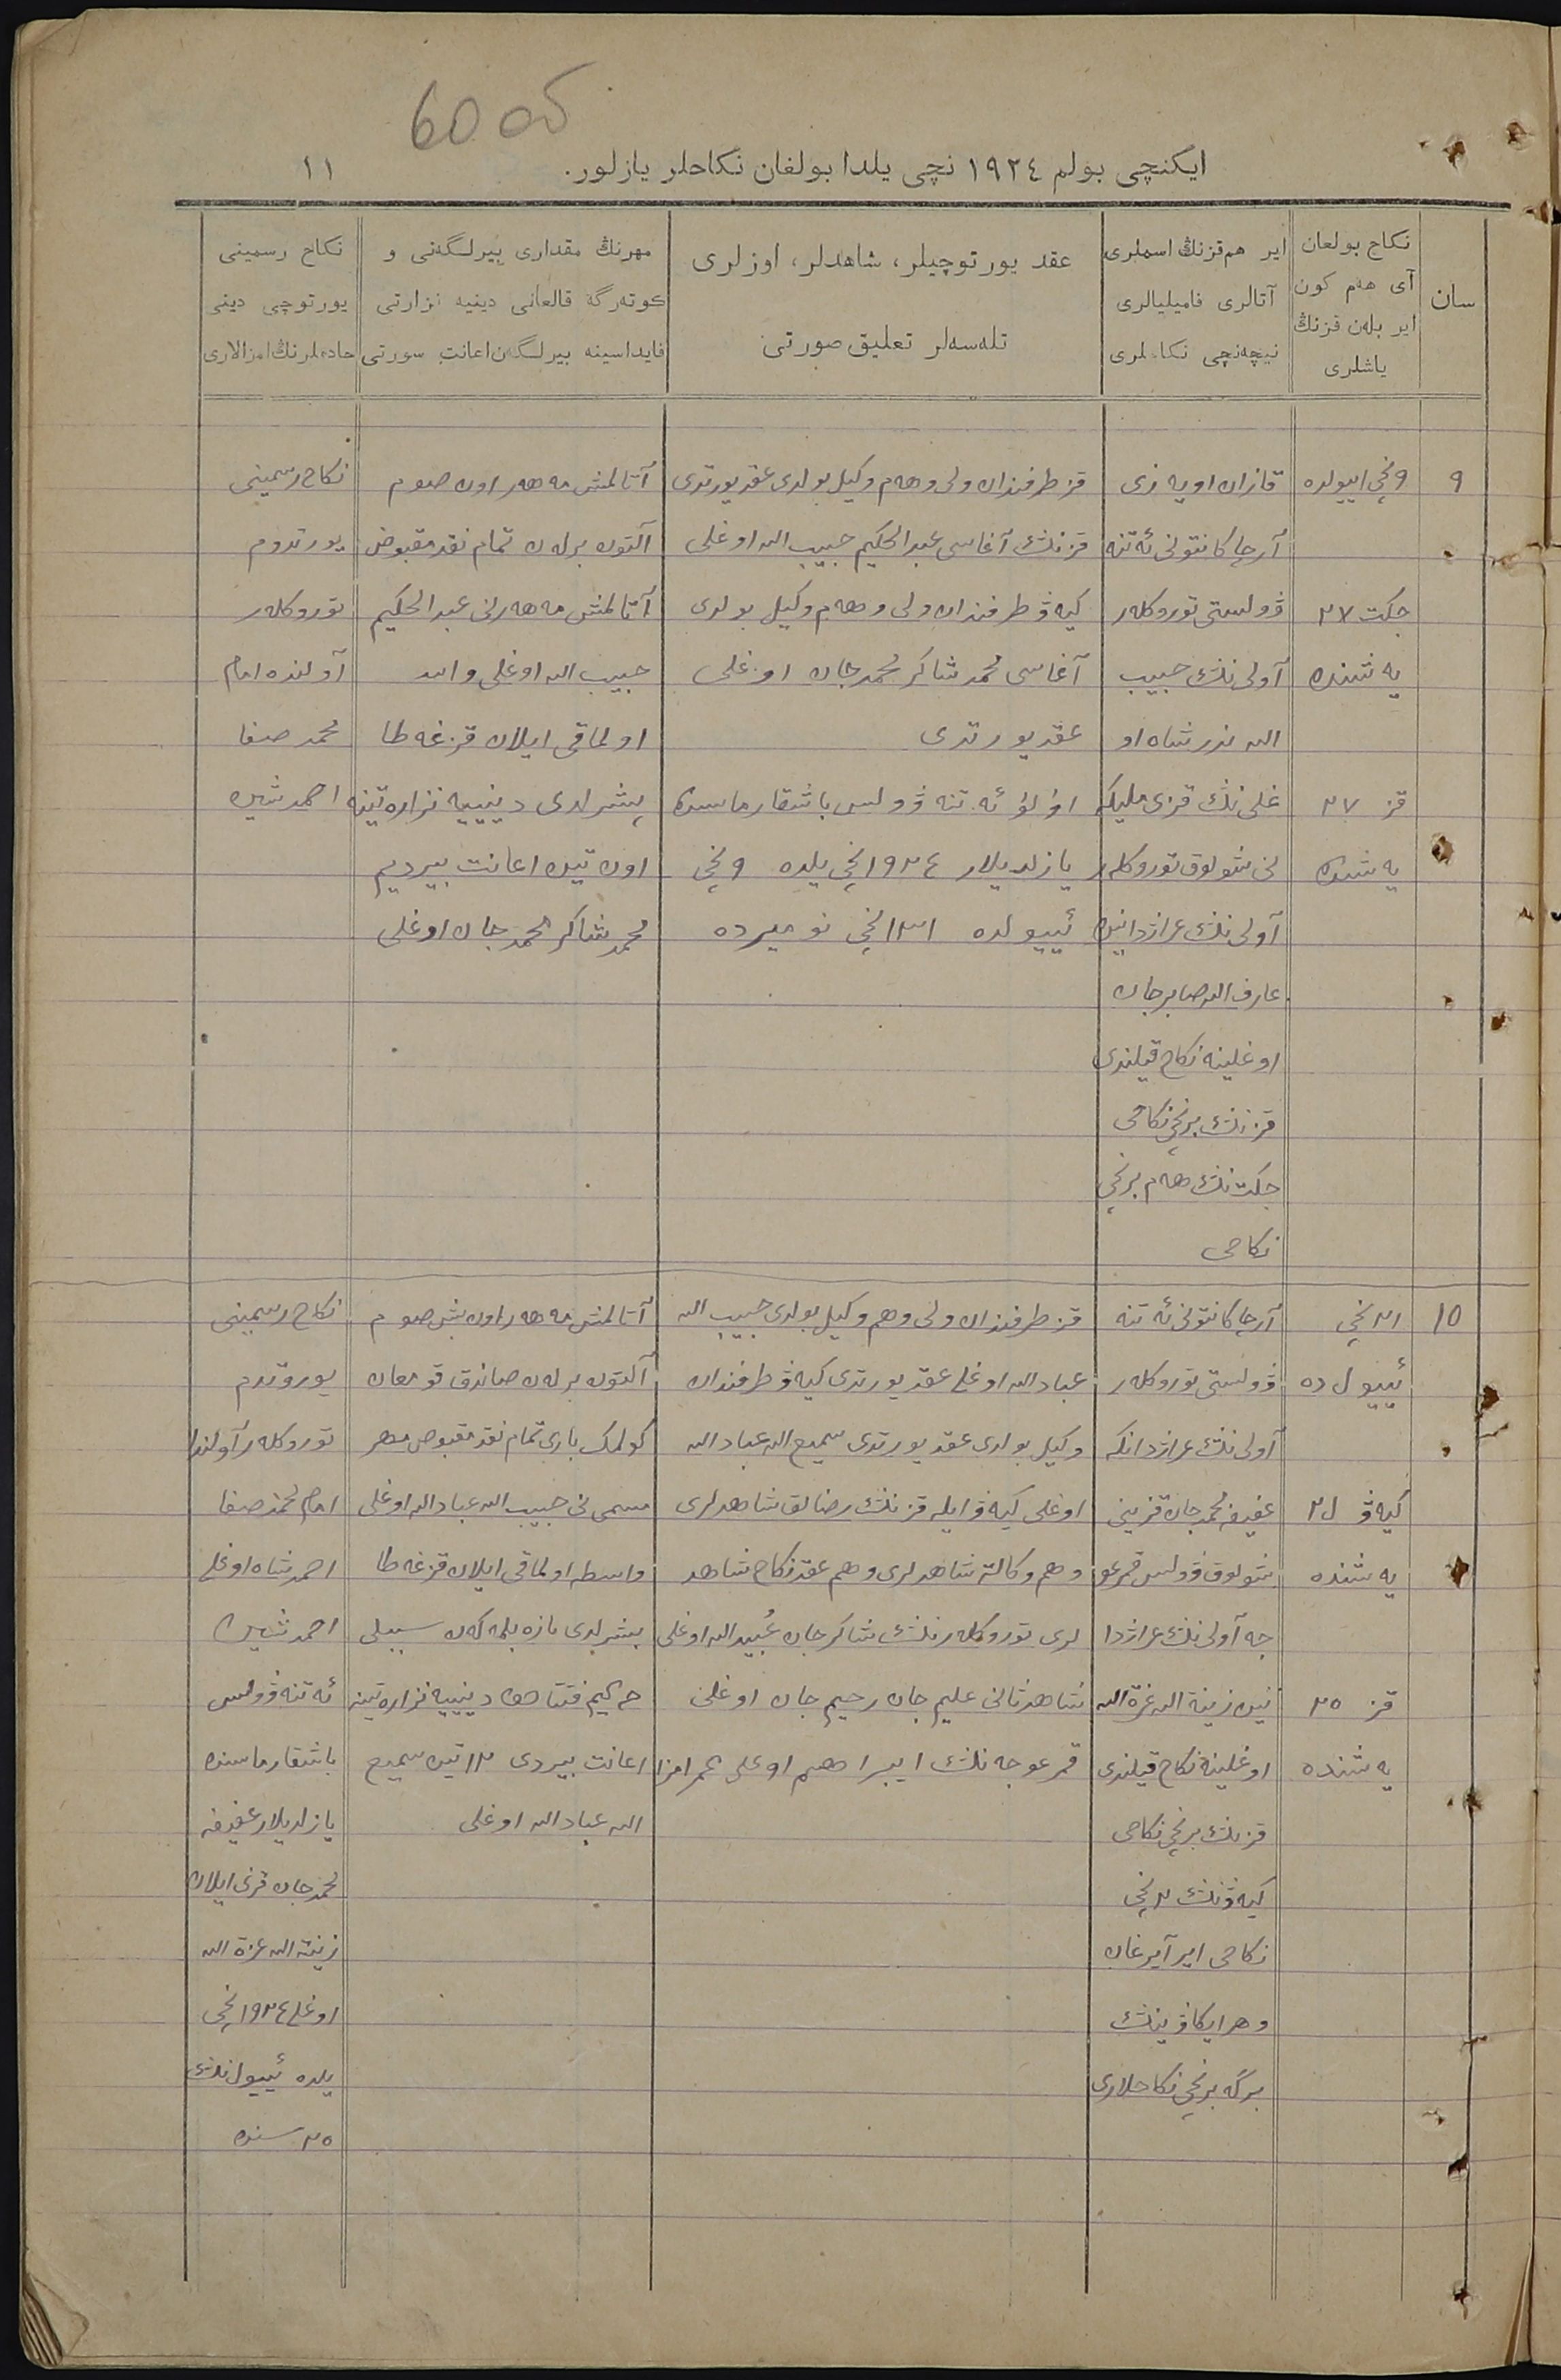 60 که
ایکنچی بولم ١٩٢٤ نچی یلدا بولغان نکاحلر یازلور.
١١
سان
نکاح بولعان
آی هەم کون
ایر بلەن قزنڭ
یاشلری
ایر هم قزنڭ اسملری
آتالری فامیلیالری
نیچەنچی نکاحلری
عقد یورتوچیلر، شاهدلر، اوزلری
تلەسەلر تعلیق صورتی
مهرنڭ مقداری بیرلگەنی و
کوتەرگە قالعانی دینیه نزارتی
فایداسینه بیرلگەن اعانت سورتی
نکاح رسمینی
یورتوچی دینی
خادملرنڭ امزالاری
٩
٩ نچی اییولده
جکت ٢٧
یەشندە
قز ٢٧
یەشندە
قازان اویەزی
آرچا کانتونی ئەتنە
ڤولستی توروکلەر
آولی نڭ حبیب
الله نزرشاه او
غلی نڭ قزی ملیکە
نی شولوق توروکلەر
آولی نڭ عراژدانین
عارف الله صابرجان
اوغلینه نکاح قیلندی
قزنڭ برنچی نکاحی
جکت نڭ هەم برنچی
نکاحی
قز طرفندان ولی و هەم وکیل بولدی عقد یورتدی
قزنڭ آغاسی عبدالحکیم حبیب الله اوغلی
کیەڤ طرفندان ولی و هەم وکیل بولدی
آغاسی محمدشاکر محمدجان اوغلی
عقد یورتدی
اۇلۇ ئەتنە ڤولس باشقارماسندە
یازلدیلار ١٩٢٤ نچی یلدە ٩ نچی
ئییولدە ١٢١ نچی نومیردە
آتالمش مەهەر اون صوم
آلتون برلەن تمام نقد مقبوض
آتالمش مەهەرنی عبدالحکیم
حبیب الله اوغلی واسد
اولماقی ایلان قزغە طا
پشرلدی دینییە نزارەتینە
اون تین اعانت بیردیم
محمدشاکر محمدجان اوغلی
نکاح رسمینی
یورتدوم
توروکلەر
آولندە امام
محمد صفا
احمدشین
١٠
٢١ نچی
ئییول دە
کیەڤ ٢١
یەشندە
قز ٢٥
یەشندە
آرچا کانتونی ئەتنە
ڤولستی توروکلەر
آولی نڭ عراژدانکە
عفیفە محمدجان قزینی
شولوق ڤولس قمرعو
جە آولی نڭ عراژدا
نین زینة الله عزة الله
اوغلینه نکاح قیلندی
قزنڭ برنچی نکاحی
کیەڤ نڭ ٢ نچی
نکاحی ایر آیرغان
و هر ایکاڤینڭ
برگە برنچی نکاحلاری
قز طرفندان ولی و هم وکیل بولدی حبیب الله
عبادالله اوغلی عقد یورتدی کیەڤ طرفندان
وکیل بولدی عقد یورتدی سمیع الله عبادالله
اوغلی کیەڤ ایلە قزنڭ رضالق شاهدلری
و هم وکالة شاهدلری و هم عقد نکاح شاهد
لری توروکلەرنڭ شاکرجان عُبیدالله اوغلی
شاهد ثانی علیم جان رحیم جان اوغلی
قمرعوجەنڭ ایبراهیم اوغلی عمر امزا
آتالمش مەهەر اون بش صوم
آلتون برلەن صاندق قومعان
کولمک باری تمام نقد مقبوض مهر
مسمی نی حبیب الله عبادالله اوغلی
واسطە اولماقی ایلان قزغە طا
پشرلدی یازە بلمەکەن سببلی
دینییە نزارەتینە
اعانت بیردی ١٢ تین سمیع
الله عبادالله اوغلی
نکاح رسمینی
یوروتدم
توروکلەر آولندا
امام محمد صفا
احمدشاه اوغلی
احمدشین
ئەتنە ڤولس
باشقارماسندە
یازلدیلار عفیفە
محمدجان قزی ایلان
زینة الله عزة الله
اوغلی ١٩٢٤ نچی
یلدە ئییول نڭ
٢٥ سندە